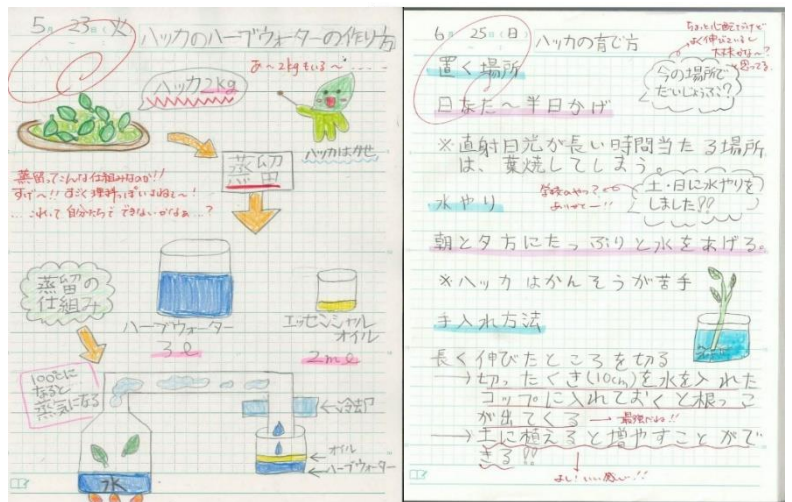 5月 23日(火)
ハッカのハーブウォーターの作り方
ハッカ2kg
あ〜2kgもいる〜
ハッカはかせ
蒸留
蒸留ってこんな仕組みなのか!!
すげ〜!!すごく理科っぽいよね〜!
…これって自分たちでできないかなぁ…?
蒸留の
仕組み
ハーブウォーター
3ℓ
エッセンシャル
オイル
2mℓ
100℃に
なると
蒸気になる
←冷却
←オイル
←ハーブウォーター
水
6月 25日(日)
ハッカの育て方
ちょっと心配だけど
よく伸びているし
大丈夫かな〜?
と思ってる
今の場所で
だいじょうぶ?
置く場所
日なた〜半日かげ
※直射日光が長い時間当たる場所
は、葉焼してしまう。
学校のやつ?
ありがと〜!!
土・日に水やりを
しました!!
水やり
朝と夕方にたっぷりと水をあげる。
※ハッカはかんそうが苦手
手入れ方法
長く伸びたところを切る
→切ったくき(10cm)を水を入れた
コップに入れておくと根っこ
が出てくる
→土に植えると増やすことがで
きる!!
よし!いい感じ!!